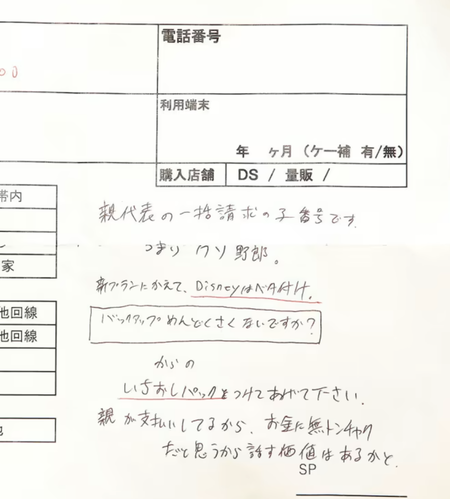 電話番号
00
利用端末
年 ヶ月 (ケー補 有/無)
購入店舗 DS / 量販 /
帯内
親代表の一括請求の子番号です.
つまり クソ野郎。
家
新プランにかえて、Disneyはベタ付け。
他回線
バックアップめんどくさくないですか?
他回線
からの
いちおしパックをつけてあげて下さい.
親が支払いしてるから、お金に無トンチャク
だと思うから話す価値はあるかと.
SP